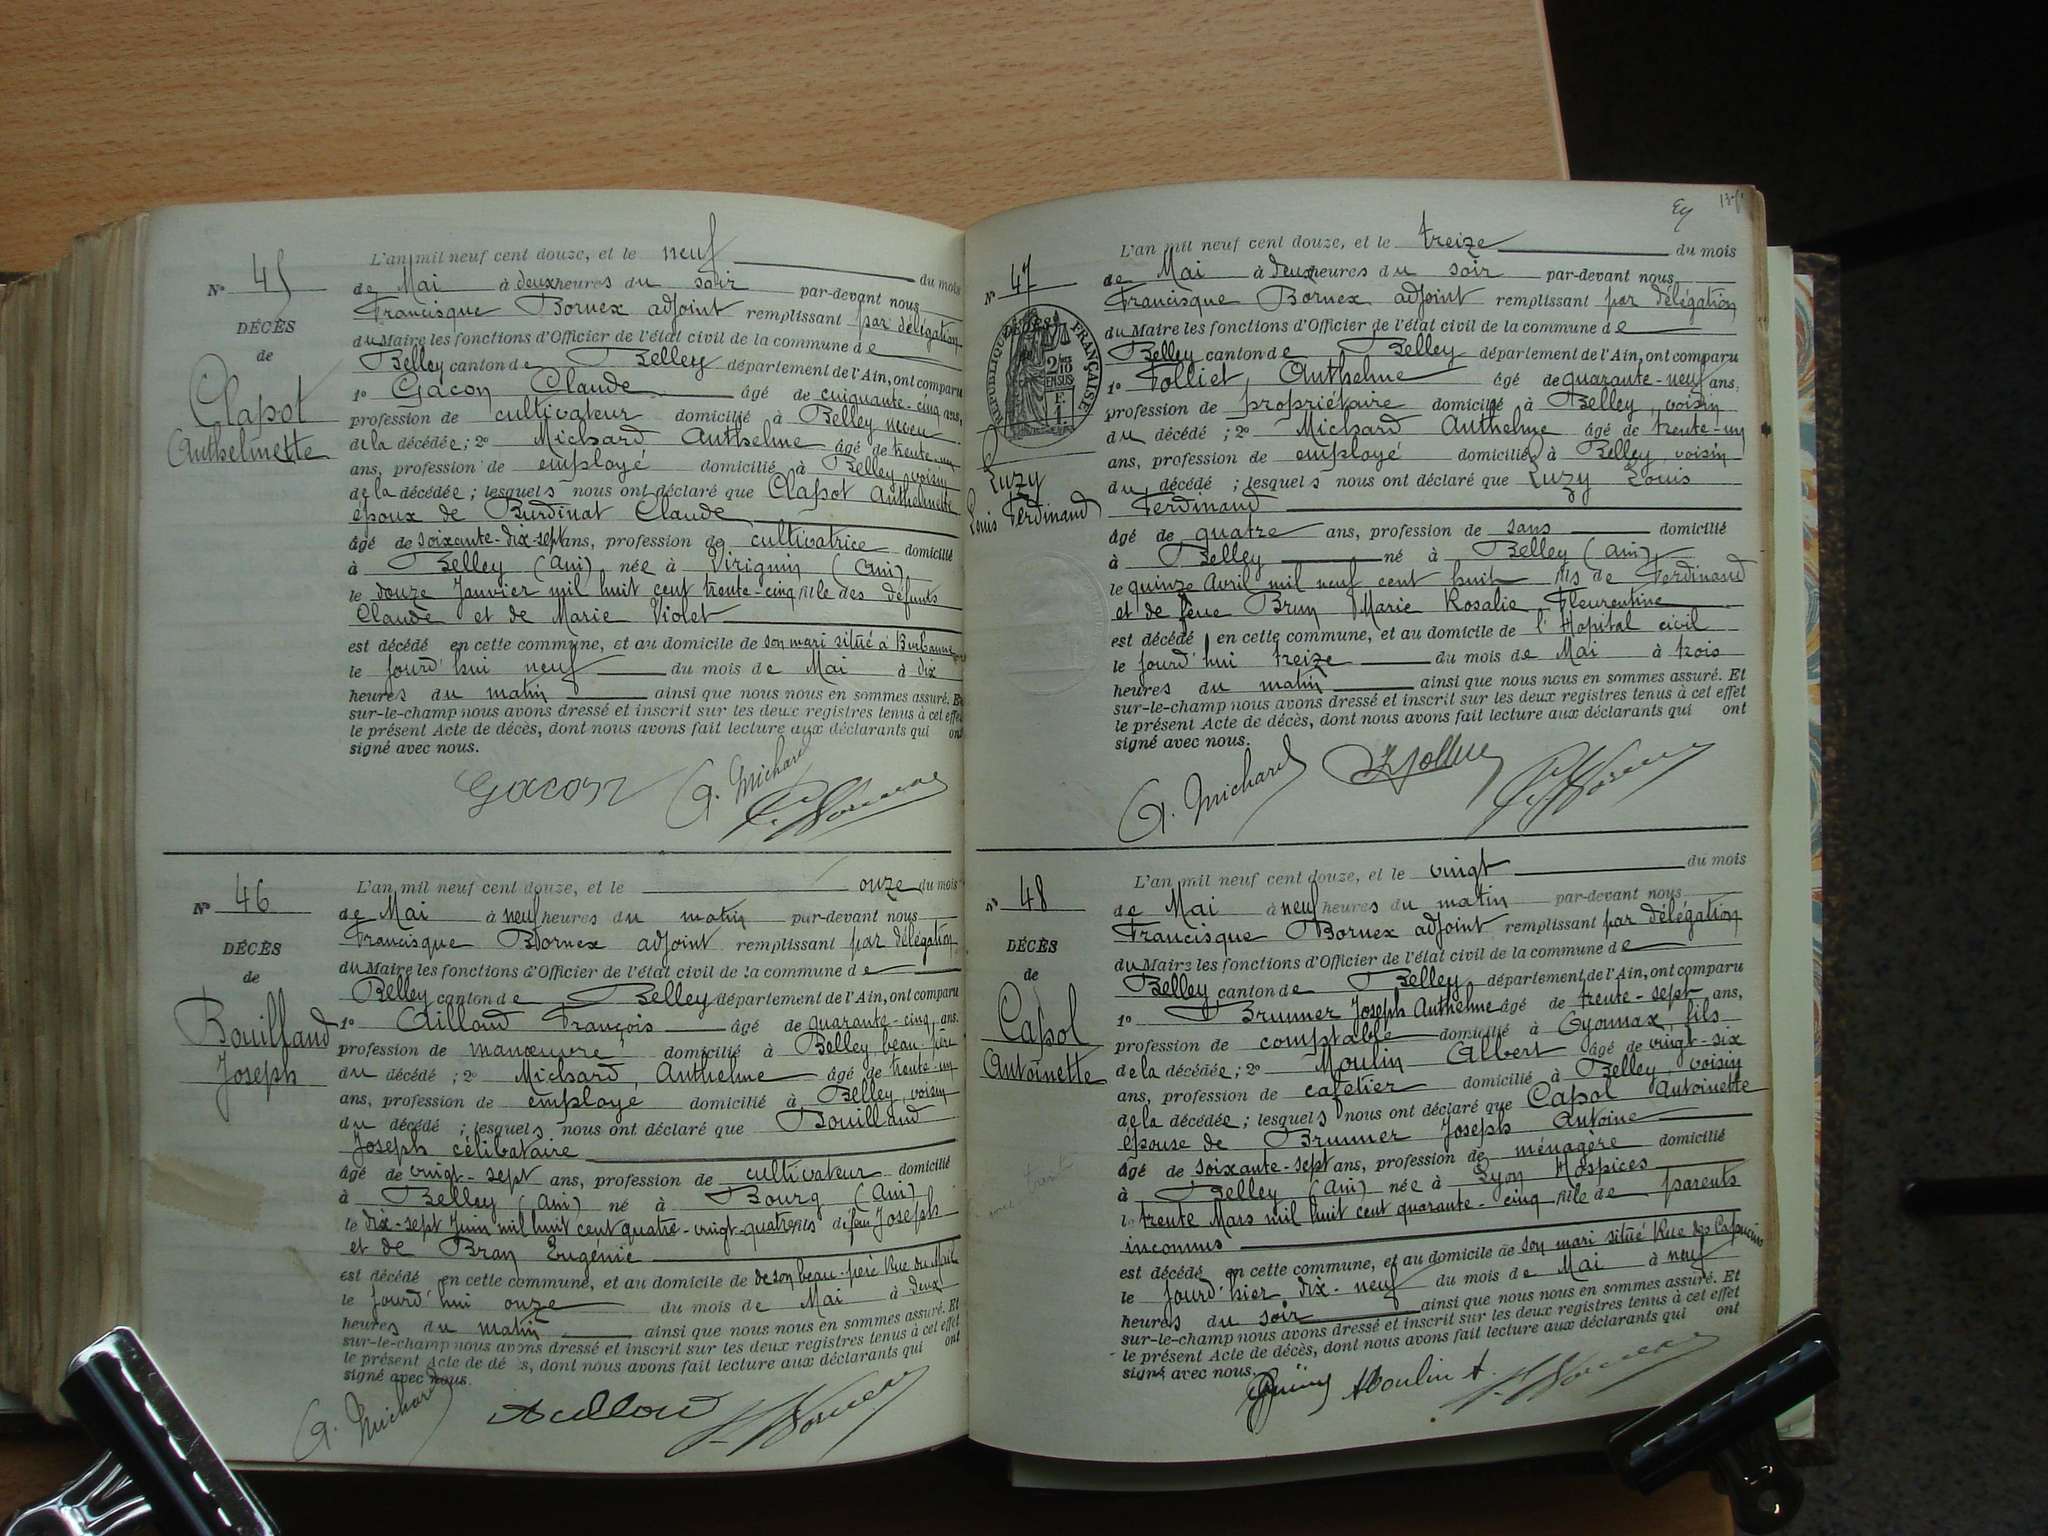 N° 45
DÉCÈS
de
Clapot
Anthelmette
L'an mil neuf cent douze, et le neuf du mois
de Mai à deux heures du soir par-devant nous
Francisque Bornex adjoint remplissant par délégation
du Maire les fonctions d'Officier de l'état civil de la commune de
Belley canton de Belley département de l'Ain, ont comparu
1° Gacon Claude âgé de cinquante-cinq ans,
profession de cultivateur domicilié à Belley neveu
de la décédée; 2° Michard Anthelme âgé de trente-un
ans, profession de employé domicilié à Belley, voisin
de la décédée; lesquels nous ont déclaré que Clapot Anthelmette
époux de Burdinat Claude
âgé de soixante-dix-sept ans, profession de cultivatrice domicilié
à Belley (Ain) née à Virignin (Ain)
le douze Janvier mil huit cent trente-cinq fille des défunts
Claude et de Marie Violet
est décédé en cette commune, et au domicile de son mari situé à
le jourd'hui neuf du mois de Mai à dix
heures du matin ainsi que nous nous en sommes assuré. Et
sur-le-champ nous avons dressé et inscrit sur les deux registres tenus à cet effet
le présent Acte de décès, dont nous avons fait lecture aux déclarants qui ont
signé avec nous.
Gacon A. Michard
N° 46
DÉCÈS
de
Bouilland
Joseph
L'an mil neuf cent douze, et le onze du mois
de Mai à neuf heures du matin par-devant nous
Francisque Bornex adjoint remplissant par délégation
du Maire les fonctions d'Officier de l'état civil de la commune de
Belley canton de Belley département de l'Ain, ont comparu
1° Ailloud François âgé de quarante-cinq ans.
profession de manœuvre domicilié à Belley beau-père
du décédé; 2° Michard, Anthelme âgé de trente-un
ans, profession de employé domicilié à Belley, voisin
du décédé; lesquels nous ont déclaré que Bouilland
Joseph célibataire
âgé de vingt-sept ans, profession de cultivateur domicilié
à Belley (Ain) né à Bourg (Ain)
le dix-sept Juin mil huit cent quatre-vingt-quatre fils de feu Joseph
et de Bran Eugénie
est décédé en cette commune, et au domicile de son beau-père Rue du
le jourd'hui onze du mois de Mai à deux
heures du matin ainsi que nous nous en sommes assuré. Et
sur-le-champ nous avons dressé et inscrit sur les deux registres tenus à cet effet
le présent Acte de décès, dont nous avons fait lecture aux déclarants qui ont
signé avec nous.
A. Michard Ailloud
N° 47
DÉCÈS
RÉPUBLIQUE FRANÇAISE
2/10 EN SUS
1 F.
Luzy
Louis Ferdinand
L'an mil neuf cent douze, et le treize du mois
de Mai à deux heures du soir par-devant nous
Francisque Bornex adjoint remplissant par délégation
du Maire les fonctions d'Officier de l'état civil de la commune de
Belley canton de Belley département de l'Ain, ont comparu
1° Folliet, Anthelme âgé de quarante-neuf ans,
profession de propriétaire domicilié à Belley, voisin
du décédé; 2° Michard Anthelme âgé de trente-un
ans, profession de employé domicilié à Belley, voisin
du décédé; lesquels nous ont déclaré que Luzy Louis
Ferdinand
âgé de quatre ans, profession de sans domicilié
à Belley né à Belley (Ain)
le quinze Avril mil neuf cent huit fils de Ferdinand
et de feue Brun Marie Rosalie Fleurentine
est décédé en cette commune, et au domicile de l'Hopital civil
le jourd'hui treize du mois de Mai à trois
heures du matin ainsi que nous nous en sommes assuré. Et
sur-le-champ nous avons dressé et inscrit sur les deux registres tenus à cet effet
le présent Acte de décès, dont nous avons fait lecture aux déclarants qui ont
signé avec nous.
A. Michard
N° 48
DÉCÈS
de
Capol
Antoinette
L'an mil neuf cent douze, et le vingt du mois
de Mai à neuf heures du matin par-devant nous
Francisque Bornex adjoint remplissant par délégation
du Maire les fonctions d'Officier de l'état civil de la commune de
Belley canton de Belley, département de l'Ain, ont comparu
1° Brunner Joseph Anthelme âgé de trente-sept ans,
profession de comptable domicilié à Oyonnax, fils
de la décédée; 2° Moulin Albert âgé de vingt-six
ans, profession de cafetier domicilié à Belley voisin
de la décédée; lesquels nous ont déclaré que Capol Antoinette
épouse de Brunner Joseph Antoine
âgé de soixante-sept ans, profession de ménagère domicilié
à Belley, (Ain) née à Lyon Hospices
le trente Mars mil huit cent quarante-cinq fille de parents
inconnus
est décédé en cette commune, et au domicile de son mari situé Rue des Capucins
le jourd'hier dix-neuf du mois de Mai à neuf
heures du soir ainsi que nous nous en sommes assuré. Et
sur-le-champ nous avons dressé et inscrit sur les deux registres tenus à cet effet
le présent Acte de décès, dont nous avons fait lecture aux déclarants qui ont
signé avec nous.
Moulin A.